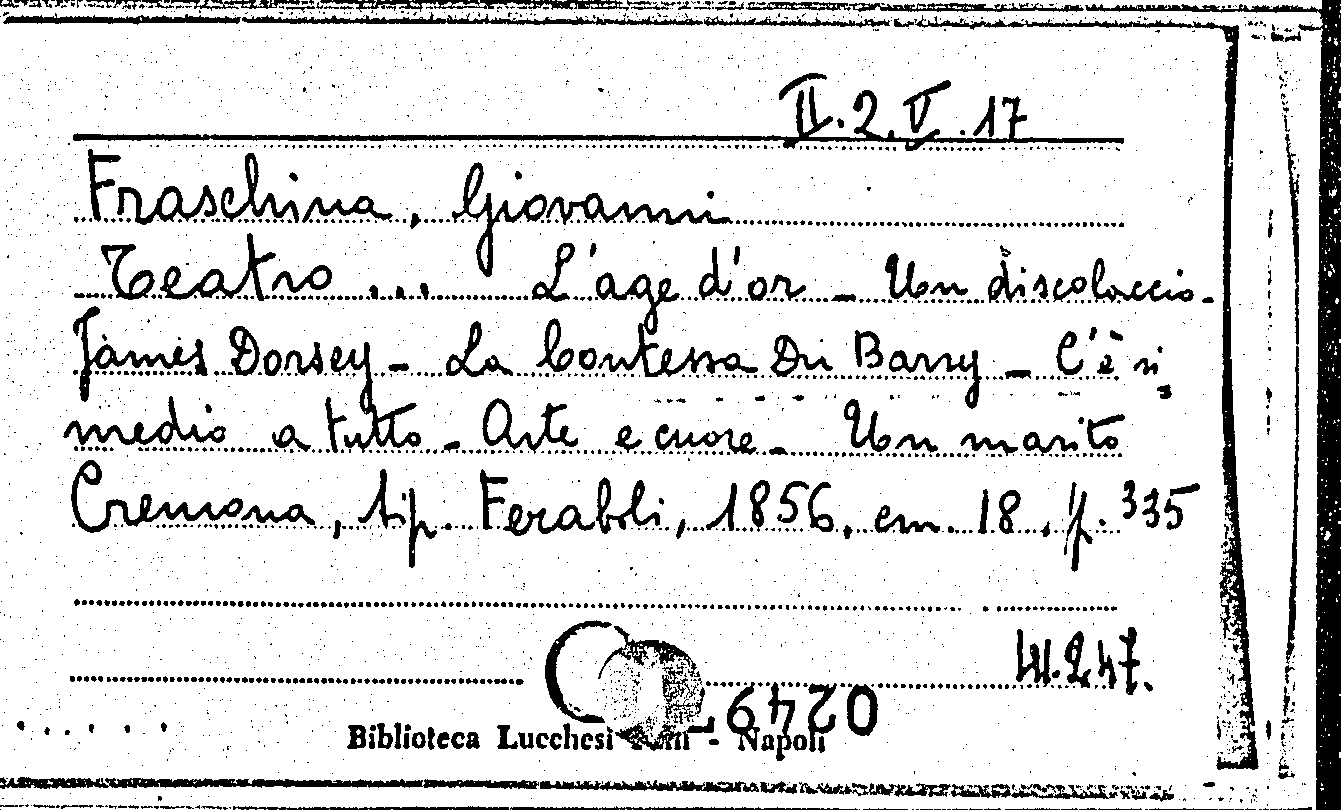 II.2.V.17
Fraschina, Giovanni
Teatro ... L'age d'or - Un discolaccio -
James Dorsey - La Contessa Du Barry - C'è ri=
medio a tutto - Arte e cuore - Un marito
Cremona, tip. Feraboli, 1856, em. 18, p. 335
0249
Biblioteca Lucchesi - Napoli